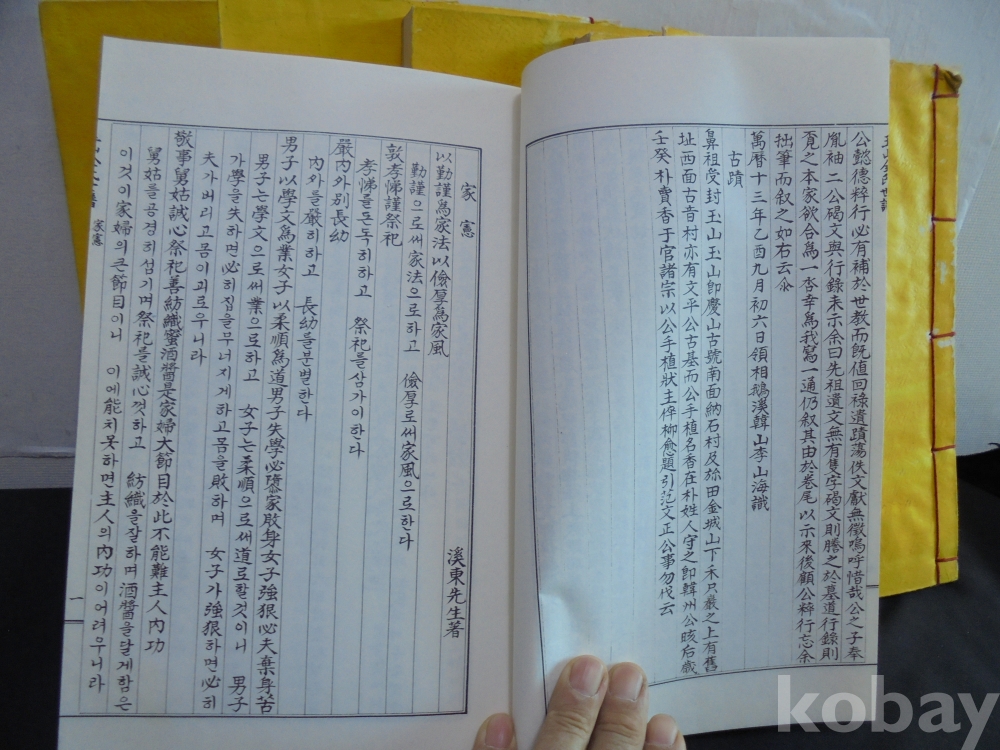 公懿德粹行必有補於世教而旣値回祿遺蹟蕩佚文獻無徵嗚呼惜哉公之子奉
胤袖二公碣文與行錄來示余曰先祖遺文無有隻字碣文則謄之於墓道行錄則
覓之本家欲合爲一本幸爲我寫一通仍叙其由於卷尾以示來後顧公粹行忘余
拙筆而叙之如右云尒
萬曆十三年乙酉九月初六日領相鵝溪韓山李山海識
古蹟
鼻祖受封玉山玉山卽慶山古號南面納石村及旀田金城山下禾只巖之上有舊
址西面古音村亦有文平公古基而公手植名香在朴姓人守之卽韓州公
壬癸朴賣香于官諸宗以公手植狀主倅柳愈題引范文正公事勿伐云
家憲
溪東先生著
以勤謹爲家法以儉厚爲家風
勤謹으로써家法으로하고 儉厚로써家風으로한다
敦孝悌謹祭祀
孝悌를도독히하고 祭祀를삼가이한다
嚴內外別長幼
內外를嚴히하고 長幼를분별한다
男子以學文爲業女子以柔順爲道男子失學必隳家敗身女子强狠必夫棄身苦
男子는學文으로써業으로하고 女子는柔順으로써道로할것이니 男子
가學을失하면必히집을무너지게하고몸을敗하며 女子가强狠하면必히
夫가버리고몸이괴로우니라
敬事舅姑誠心祭祀善紡織蜜酒醬是家婦大節目於此不能難主人內功
舅姑를공경히섬기며祭祀를誠心껏하고 紡織을잘하며酒醬을달게함은
이것이家婦의큰節目이니 이에能치못하면主人의內功이어려우니라
家憲
一
kobay